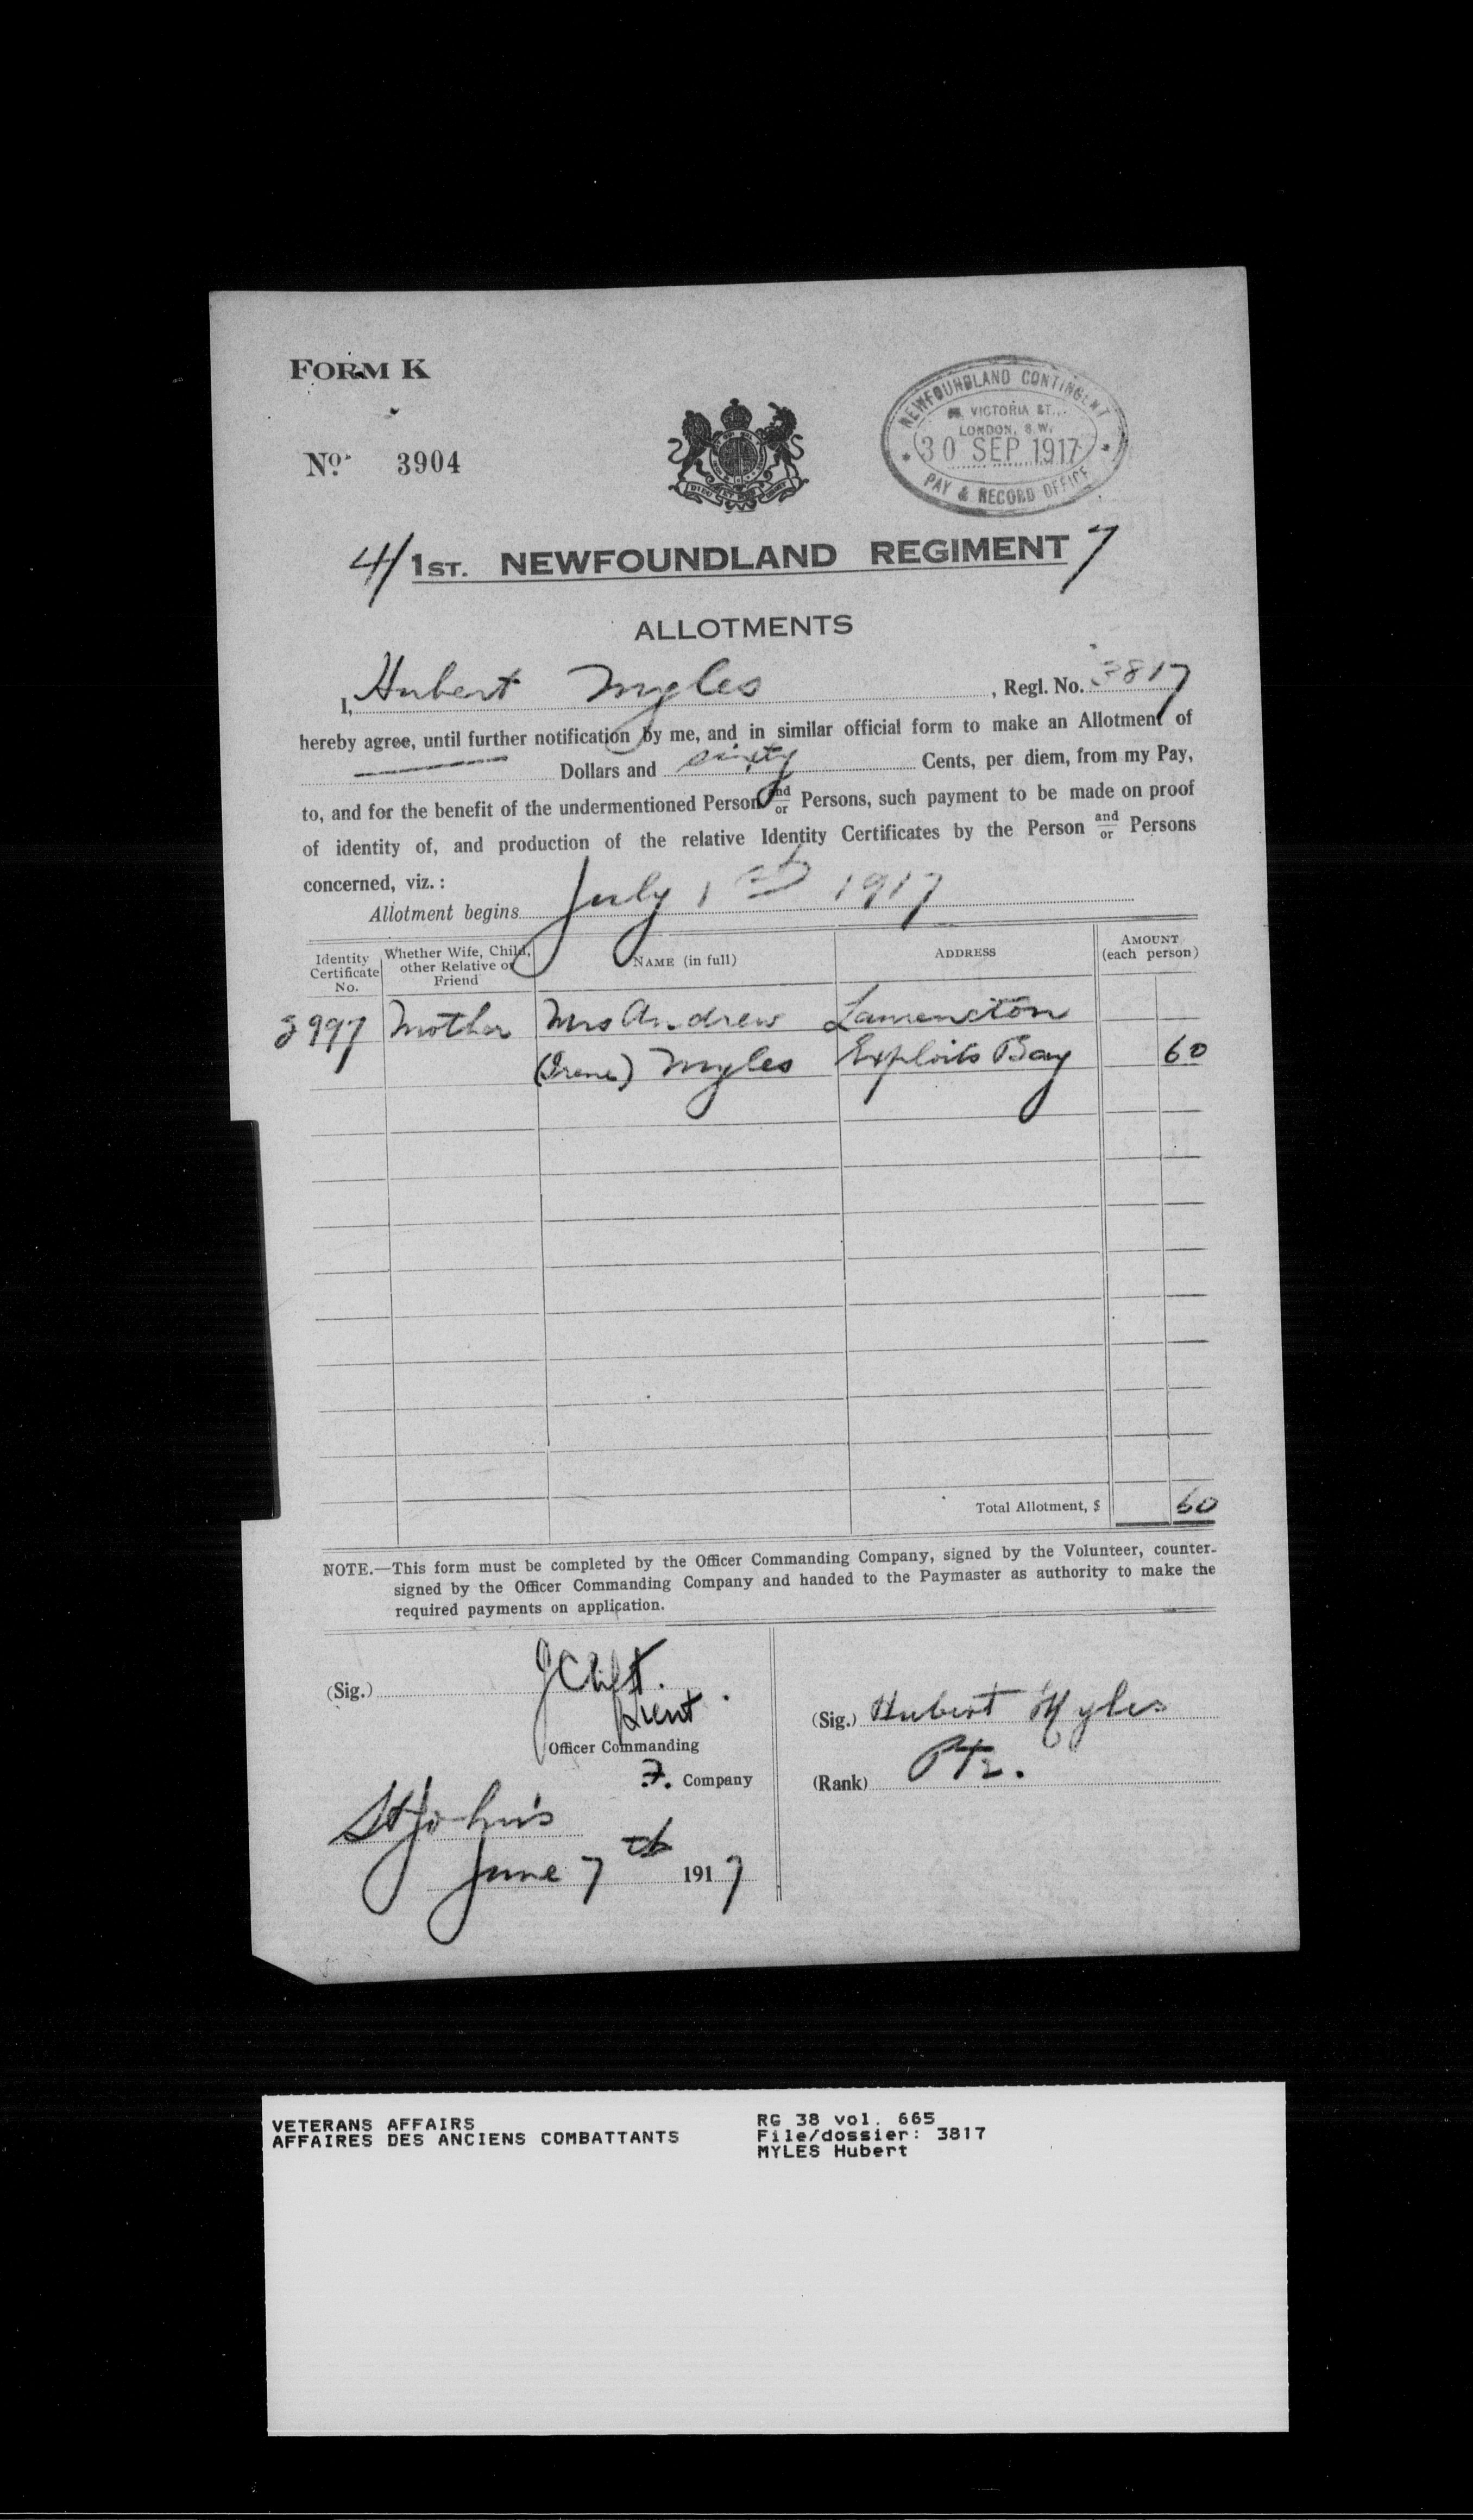 FORM K
No. 3904
NEWFOUNDLAND CONTINGENT
VICTORIA ST.,
LONDON, S.W.
30 SEP 1917
PAY & RECORD OFFICE
4/1ST. NEWFOUNDLAND REGIMENT 7
ALLOTMENTS
I, Hubert Myles, Regl. No. 3817
hereby agree, until further notification by me, and in similar official form to make an Allotment of
—— Dollars and sixty Cents, per diem, from my Pay,
to, and for the benefit of the undermentioned Person and/or Persons, such payment to be made on proof
of identity of, and production of the relative Identity Certificates by the Person and/or Persons
concerned, viz.:
Allotment begins July 1st 1917
Identity Certificate No. Whether Wife, Child, other Relative or Friend NAME (in full) ADDRESS AMOUNT (each person)
3997 Mother Mrs Andrew Laurenceton
(Irene) Myles Exploits Bay 60
Total Allotment, $ 60
NOTE.—This form must be completed by the Officer Commanding Company, signed by the Volunteer, counter-
signed by the Officer Commanding Company and handed to the Paymaster as authority to make the
required payments on application.
(Sig.) J Clift.
Lieut.
Officer Commanding
F. Company
St John's
June 7th 1917
(Sig.) Hubert Myles
(Rank) Pte.
VETERANS AFFAIRS
AFFAIRES DES ANCIENS COMBATTANTS
RG 38 vol. 665
File/dossier: 3817
MYLES Hubert